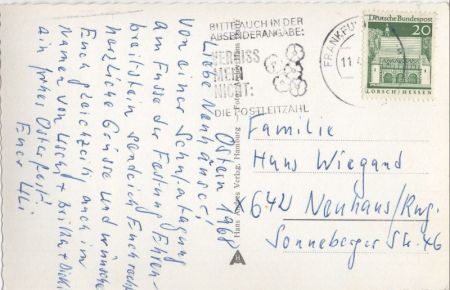 Ostern 1968
Liebe Neuhäuser!
Von einer Schulungstagung
am Fusse der Festung Ehren-
breitstein sende ich Euch recht
herzliche Grüsse und wünsche
Euch gleichzeitig auch im
Namen von
ein frohes Osterfest!
Euer Uli
BITTE AUCH IN DER
ABSENDERANGABE:
VERGISS
MEIN
NICHT:
DIE POSTLEITZAHL
FRANKFU
11.4
Deutsche Bundespost
20
LORSCH/HESSEN
Verlag, Hamburg
Familie
Hans Wiegand
x642 Neuhaus/Rwg.
Sonneberger Str. 46